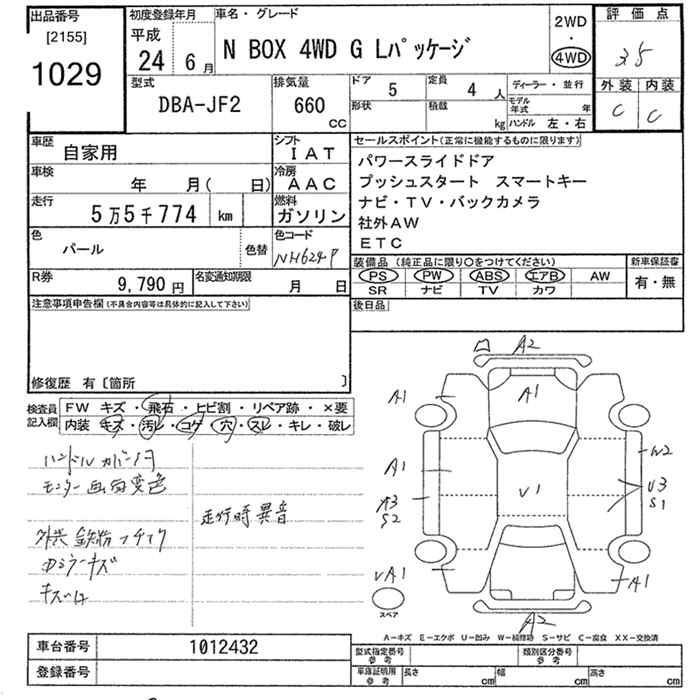 出品番号
[2155]
1029
初度登録年月
平成
24 6月
車名・グレード
N BOX 4WD G Lパッケージ
2WD
・
4WD
評価点
3.5
外装 内装
C C
型式
DBA-JF2
排気量
660
CC
ドア 5
定員 4 人
形状
積載 kg
ディーラー・並行
モデル年式 年
ハンドル 左・右
車歴
自家用
シフト
IAT
車検
年 月( 日)
冷房
AAC
走行
5万5千774 km
燃料
ガソリン
色
パール
色替
色コード
NH624P
R券
9,790円
名変通知期限
月 日
セールスポイント(正常に機能するものに限ります)
パワースライドドア
プッシュスタート スマートキー
ナビ・TV・バックカメラ
社外AW
ETC
装備品 (純正品に限り〇をつけてください)
PS PW ABS エアB AW
SR ナビ TV カワ
新車保証書
有・無
後日品
注意事項申告欄(不具合内容等は具体的に記入して下さい)
修復歴 有〔箇所 〕
検査員記入欄
FW キズ・飛石・ヒビ割・リペア跡・×要
内装 キズ・汚レ・コゲ・穴・スレ・キレ・破レ
ハンドルカバー付
モニター画面変色
走行時異音
外装 鉄粉
ドアミラーキズ
A2
A1
A1
A1
W2
A3
S2
V1
V3
S1
VA1
A1
A2
スペア
A-キズ E-エクボ U-凹み W-補修跡 S-サビ C-腐食 XX-交換済
車台番号 1012432
登録番号
型式指定番号
参考
類別区分番号
参考
車庫証明用
参考
長さ cm 幅 cm 高さ cm